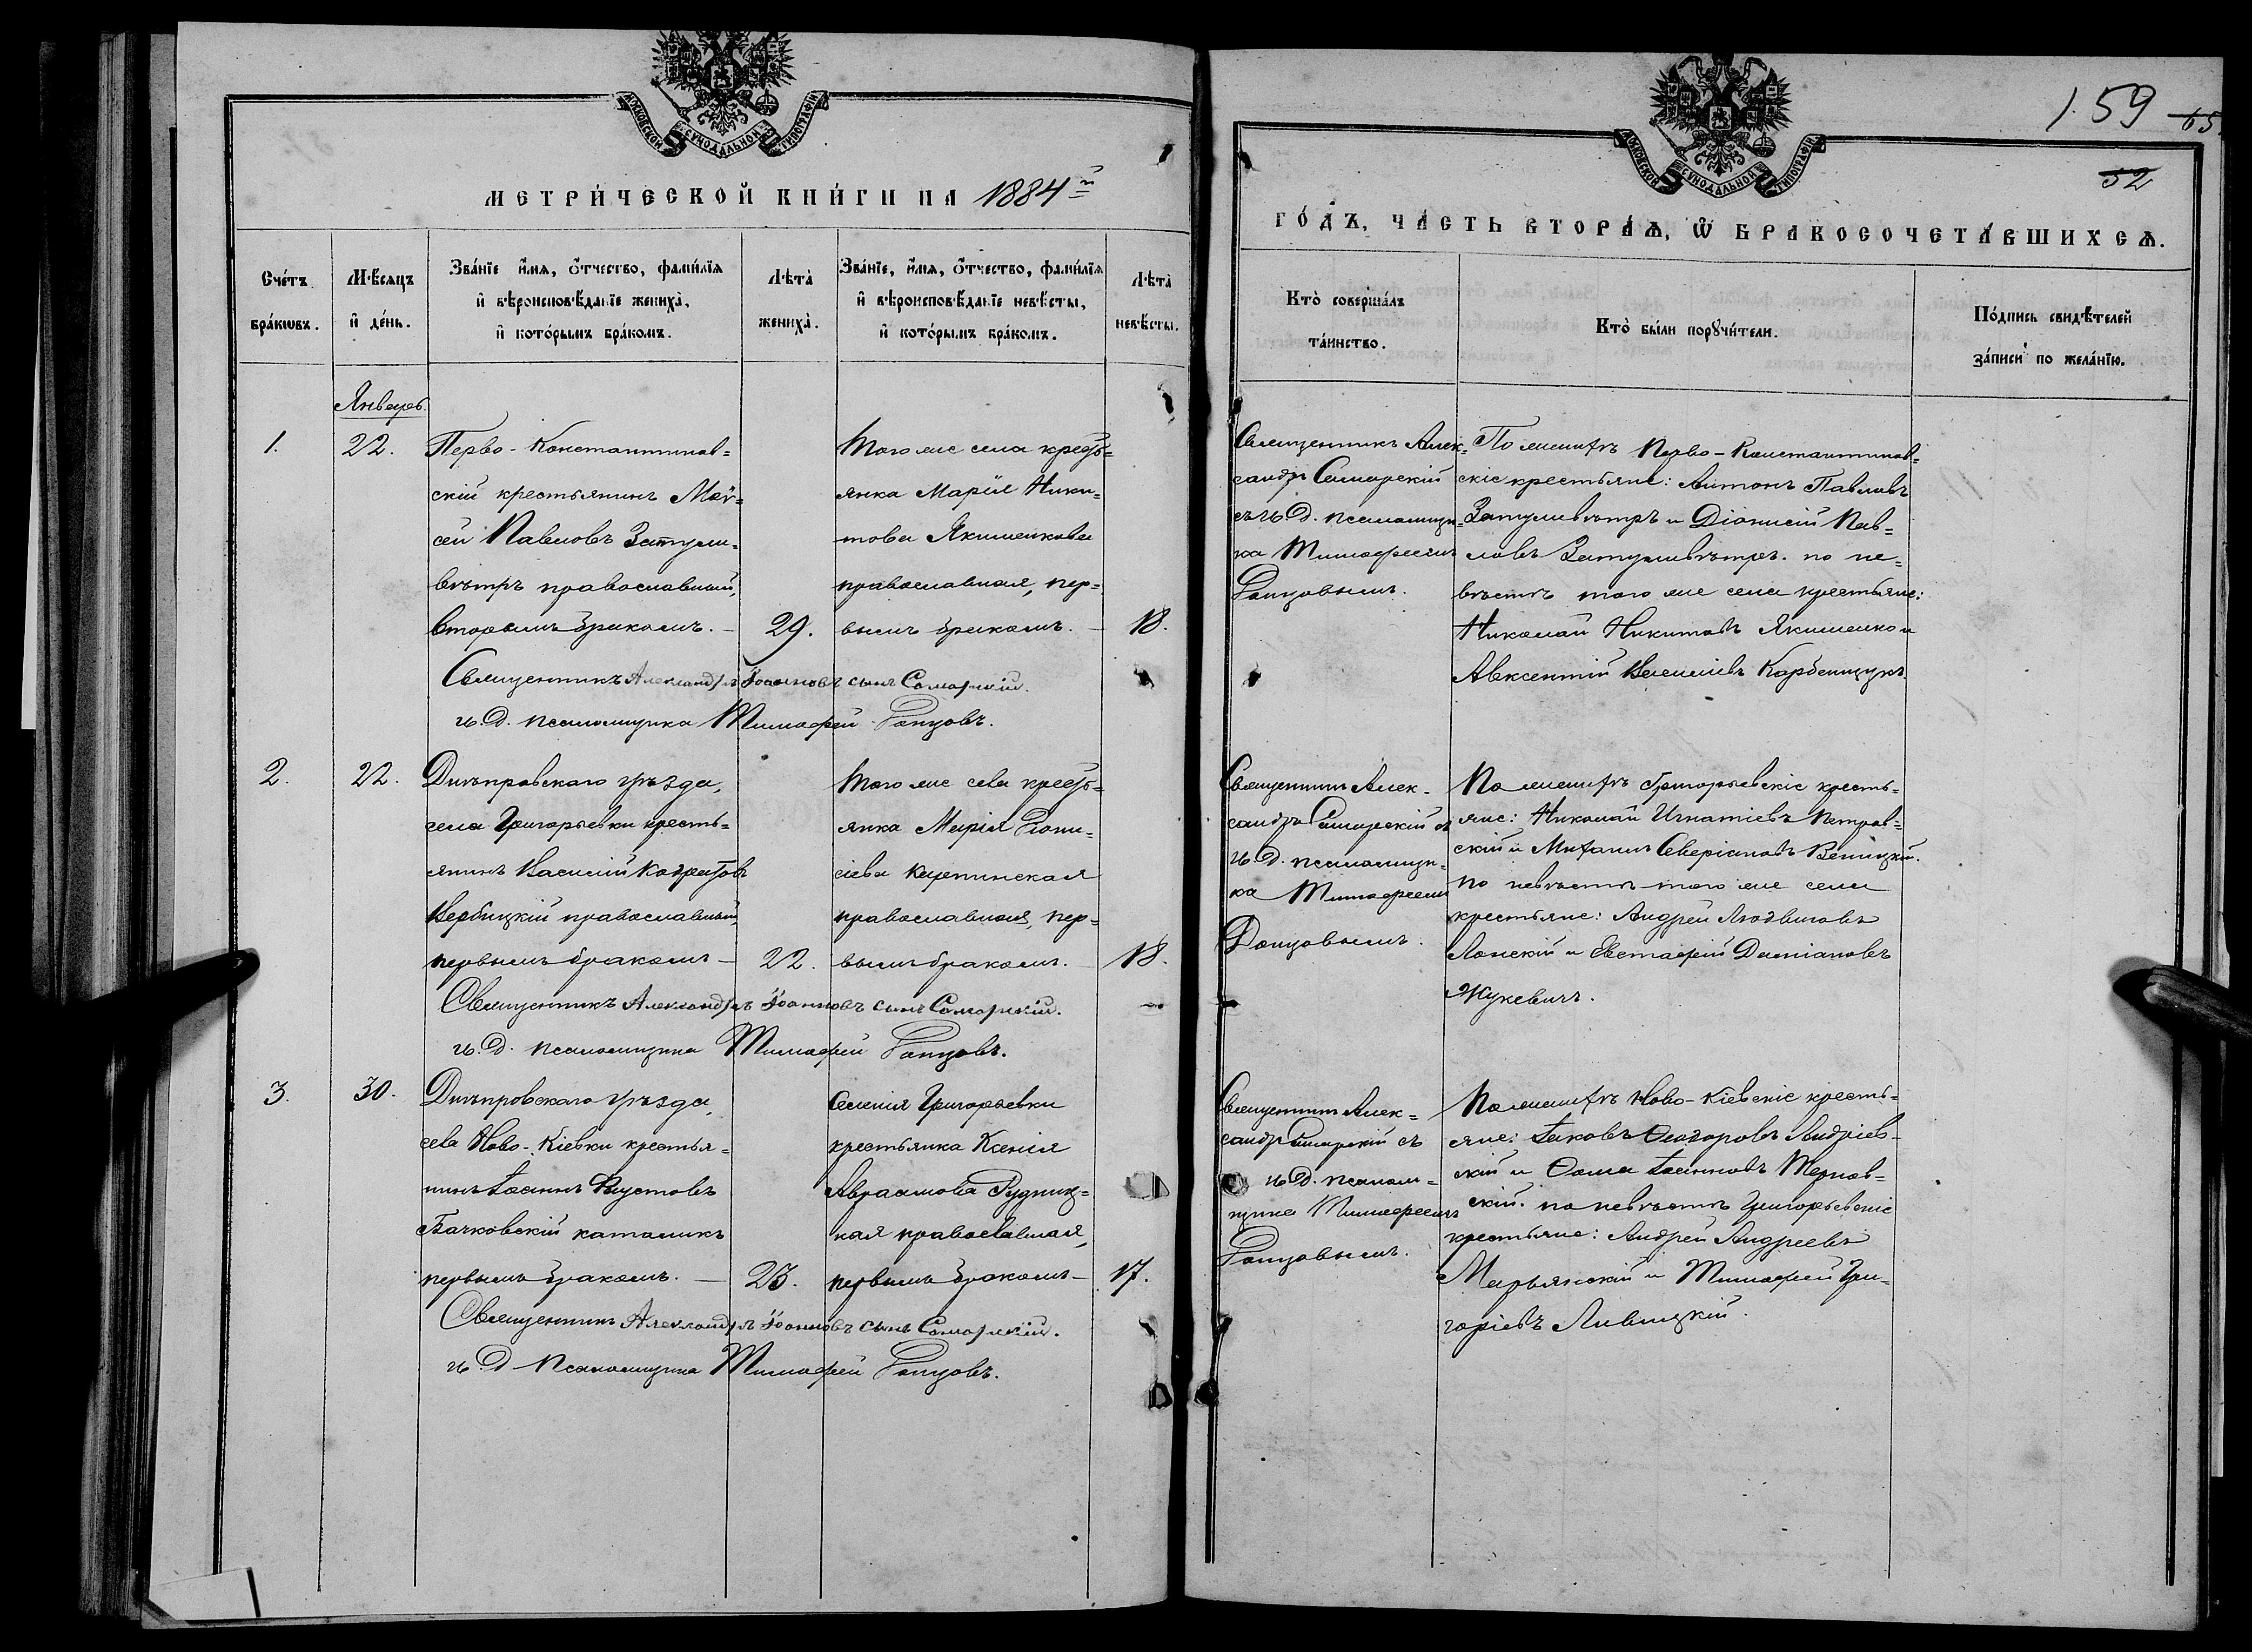 МОСКОВСКОЙ СѴНОДАЛЬНОЙ ТИПОГРАФІИ
МЕТРИ́ЧЕСКОЙ КНИ́ГИ НА 1884й
Сче́тъ бра́кѡвъ.
М҃ѣсяцъ и҆ де́нь.
Зва́нїе и҆́мѧ, ѻ҆́тчество, фамѝлїѧ
и҆ вѣроисповѣ́данїе женихà,
и҆ кото́рымъ бра́комъ.
Лѣтà женихà.
Зва́нїе, и҆́мѧ, ѻ҆́тчество, фамѝлїѧ
и҆ вѣроисповѣ́данїе невѣ́сты,
и҆ кото́рымъ бра́комъ.
Лѣтà невѣ́сты.
Январь.
1.
22.
Перво-Константинов=
скій крестьянинъ Моѵ=
сей Павловъ Затули=
вѣтръ православный,
вторымъ бракомъ. —
29.
того же села кресть=
янка Марія Ники=
това Якименкова
православная, пер=
вымъ бракомъ. —
18.
Священникъ Александръ Іоанновъ сынъ Самарскій.
и. д. псаломщика Тимофей Донцовъ.
2.
22.
Днѣпровскаго уѣзда,
села Григорьевки кресть=
янинъ Василій Кодратовъ
Вербицкій православный,
первымъ бракомъ —
22.
того же села кресть=
янка Марія Діони=
сіева
православная, пер=
вымъ бракомъ. —
18.
Священникъ Александръ Іоанновъ сынъ Самарскій.
и. д. псаломщика Тимофей Донцовъ.
3.
30.
Днѣпровскаго уѣзда,
села Ново-Кіевки крестья=
нинъ Іоаннъ Фаустовъ
Бачковскій католикъ
первымъ бракомъ. —
23.
Селенія Григорьевки
крестьянка Ксенія
Авраамова Рудниц=
кая православная,
первымъ бракомъ —
17.
Священникъ Александръ Іоанновъ сынъ Самарскій.
и. д. псаломщика Тимофей Донцовъ.
МОСКОВСКОЙ СѴНОДАЛЬНОЙ ТИПОГРАФІИ
159
65
52
ГО́ДЪ, ЧА́СТЬ ВТОРА́Ѧ, Ѽ БРАКОСОЧЕТА́ВШИХСѦ.
Ктò соверша́лъ
та́инство.
Ктò бы́ли порꙋчи́тели.
По́дпись свидѣ́телей
за́писи по жела́нїю.
Священникъ Алек=
сандръ Самарскій
съ и. д. псаломщи=
ка Тимофеемъ
Донцовымъ.
По женихѣ Перво-Константинов=
скіе крестьяне: Антонъ Павловъ
Затуливѣтръ и Діонисій Пав=
ловъ Затуливѣтръ. по не=
вѣстѣ того же села крестьяне:
Николай Никитовъ Якименко и
Авксентій Карбенщукъ.
Священникъ Алек=
сандръ Самарскій съ
и. д. псаломщи=
ка Тимофеемъ
Донцовымъ.
По женихѣ Григорьевскіе кресть=
яне: Николай Игнатіевъ Петров=
скій и Михаилъ Северіановъ
по невѣстѣ того же села
крестьяне: Андрей Людвиговъ
Лонскій и Евстафій Даміановъ
Жукевичъ.
Священникъ Алек=
сандръ Самарскій съ
и. д. псалом=
щика Тимофеемъ
Донцовымъ.
По женихѣ Ново-Кіевскіе кресть=
яне: Іаковъ Ѳеодоровъ Андріев=
скій и Ѳома Іоанновъ Тернов=
скій. по невѣстѣ Григорьевскіе
крестьяне: Андрей Андреевъ
Марьянскій и Тимофей Гри=
горіевъ Ливицкій.